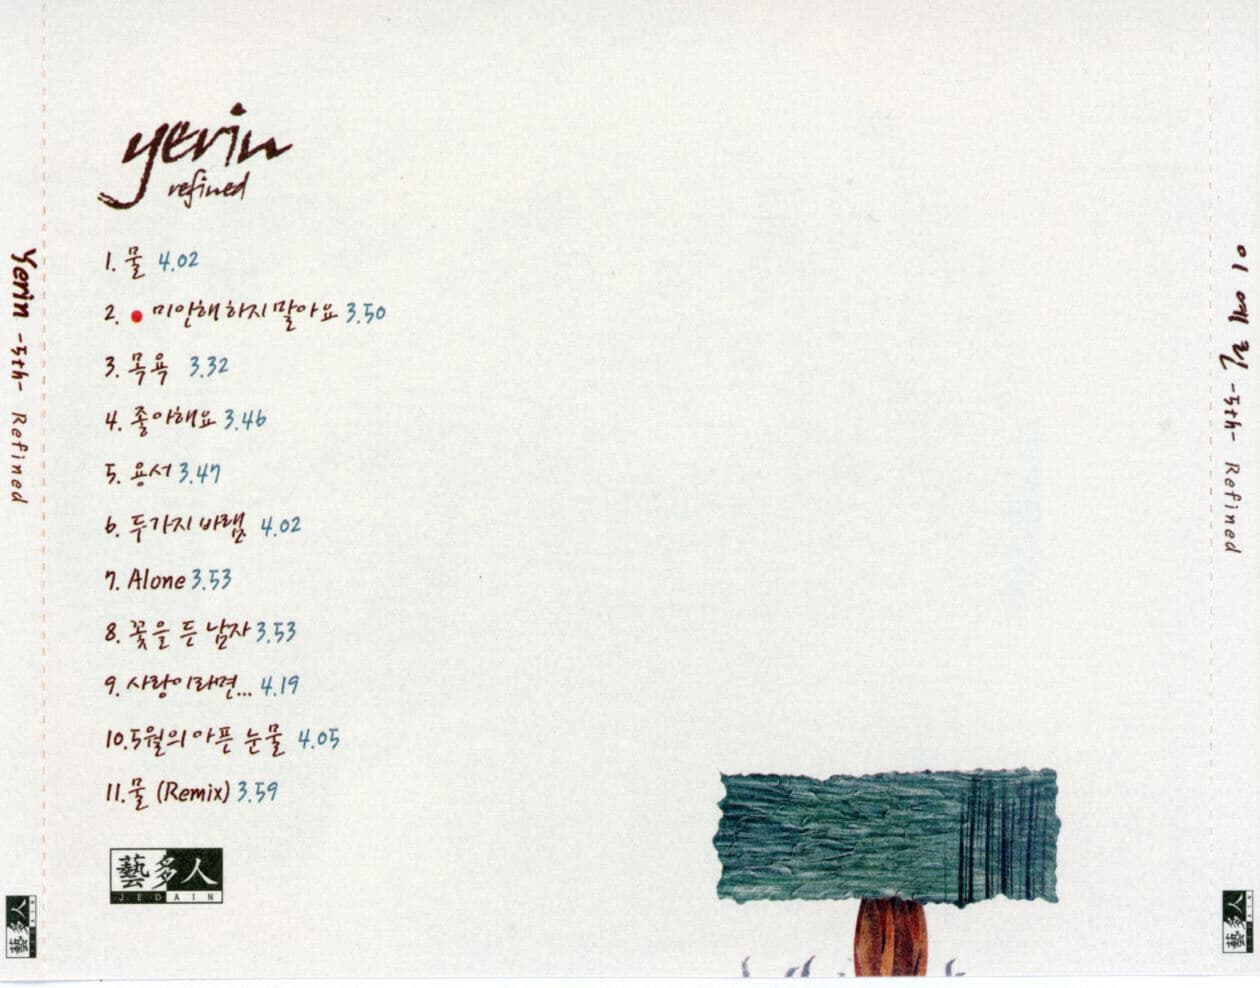 yerin
refined
1. 물 4.02
2. 미안해 하지 말아요 3.50
3. 목욕 3.32
4. 좋아해요 3.46
5. 용서 3.47
6. 두가지 바램 4.02
7. Alone 3.53
8. 꽃을 든 남자 3.53
9. 사랑이라면... 4.19
10. 5월의 아픈 눈물 4.05
11. 물 (Remix) 3.59
藝多人
JEDAIN
Yerin -5th- Refined
藝多人
JEDAIN
이예린 -5th- Refined
藝多人
JEDAIN